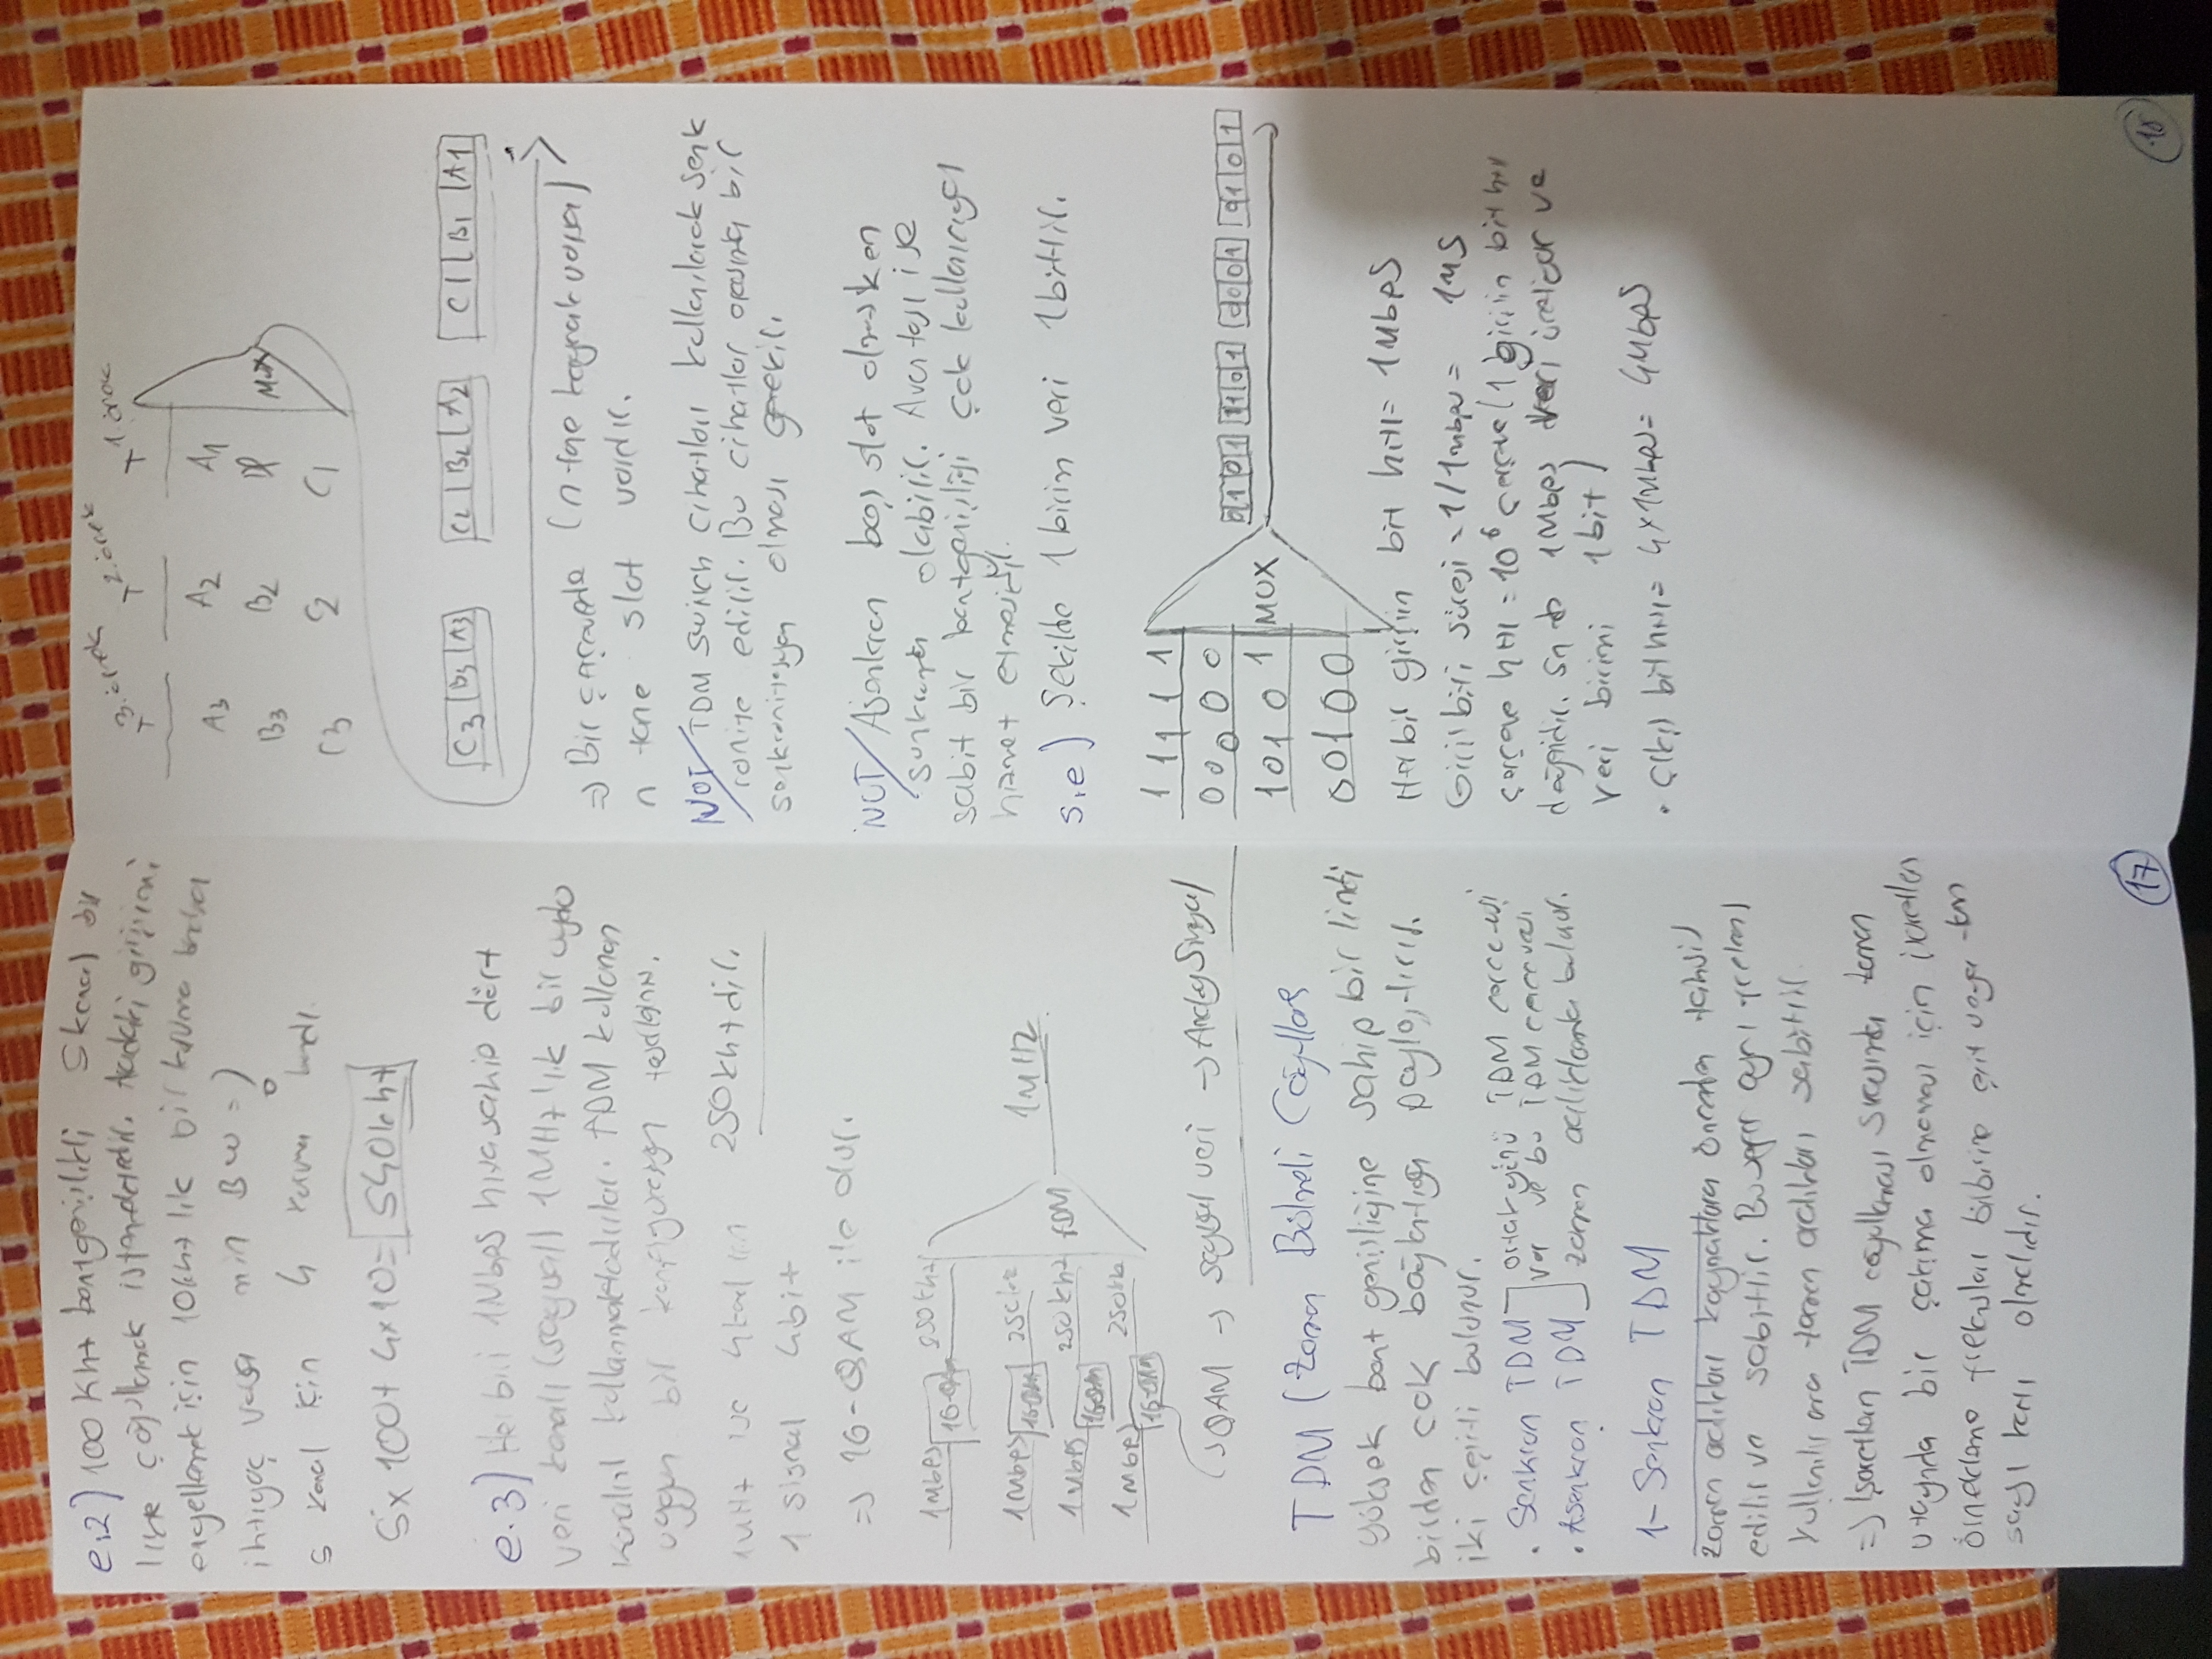 e.2) 100 Khz bantgenişlikli 5 kanal bir
linke çoğullamak istenmektedir. Aradaki girişimi
engellemek için 10khz lik bir koruma bandına
ihtiyaç varsa min BW = ?
5 kanal için 4 koruma bandı.
5x 100 + 4x10 = 540khz
e.3) Her biri 1Mbps hıza sahip dört
veri kanalı (sayısal) 1MHz'lik bir uydu
kanalını kullanmaktadırlar. FDM kullanan
uygun bir konfigürasyon tasarlayınız.
1MHz ise 4kanal için 250khz dir.
1 signal 4bit
=> 16-QAM ile olur.
1Mbps 16-QAM 250khz
1Mbps 16-QAM 250khz
1Mbps 16QAM 250khz FDM 1MHz
1Mbps 16-QAM 250khz
QAM -> sayısal veri -> Analog Sinyal
TDM (Zaman Bölmeli Çoğullama
Yüksek bant genişliğine sahip bir linki
birden çok bağlantıya paylaştırır.
iki çeşiti bulunur.
. Senkron TDM ortak yönü TDM çerçevesi
var ve bu TDM çerçevesi
. Asenkron TDM zaman aralıklarında bulunur.
1- Senkron TDM
zaman aralıkları kaynaklara önceden tahsis
edilir ve sabittir. Bu sefer aynı frekans
kullanılır ama zaman aralıkları sabittir.
=> İşaretlerin TDM çoğullaması sırasında zaman
uzayında bir çakışma olmaması için işaretlerin
örnekleme frekansları birbirine eşit veya tam
sayı katı olmalıdır.
17
3.örnek 2.örnek 1.örnek
T T T
A3 A2 A1
B3 B2 MUX
C3 C2 C1
C3 B3 A3 C2 B2 A2 C1 B1 A1
=> Bir çerçevede (n tane kaynak varsa)
n tane slot vardır.
NOT/ TDM switch cihazları kullanılarak senk
ronize edilir. Bu cihazlar arasında bir
senkronizasyon olması gerekir.
NOT/ Asenkron boş slot olmazken
senkronda olabilir. Avantajı ise
sabit bir bantgenişliği çok kullanıcıya
hizmet etmesidir.
s.e) Şekilde 1 birim veri 1bittir.
1 1 1 1 1
0 0 0 0 0
1 0 1 0 1 MUX
0 0 1 0 0
Her bir girişin bit hızı = 1Mbps
Giriş biti süresi = 1/1Mbps = 1µs
çerçeve hızı = 10⁶ çerçeve (1 girişin bit hızı
değeridir. Sn de 1Mbps veri üretiyor ve
veri birimi 1bit)
. Çıkış bit hızı = 4x1Mbps = 4Mbps
18